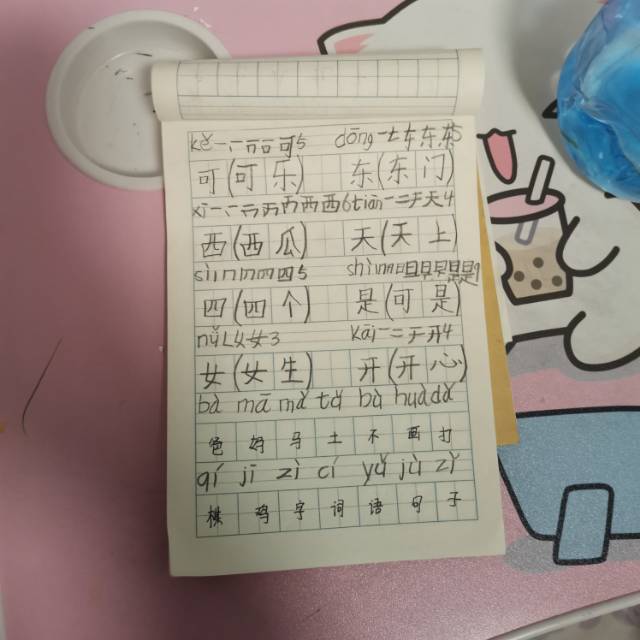 kě 一 丆 可 5 dōng 一 左 车 东 东 5
可(可乐) 东(东门)
xī 一 丆 丙 西 西 6 tiān 一 二 于 天 4
西(西瓜) 天(天上)
sì 四 5 shì 日 旦 早 是 9
四(四个) 是(可是)
nǚ 女 3 kāi 一 二 于 开 4
女(女生) 开(开心)
bà mā mǎ tǔ bù huà dǎ
色 好 马 土 不 画 打
qí jī zì cí yǔ jù zǐ
棋 鸡 字 词 语 句 子